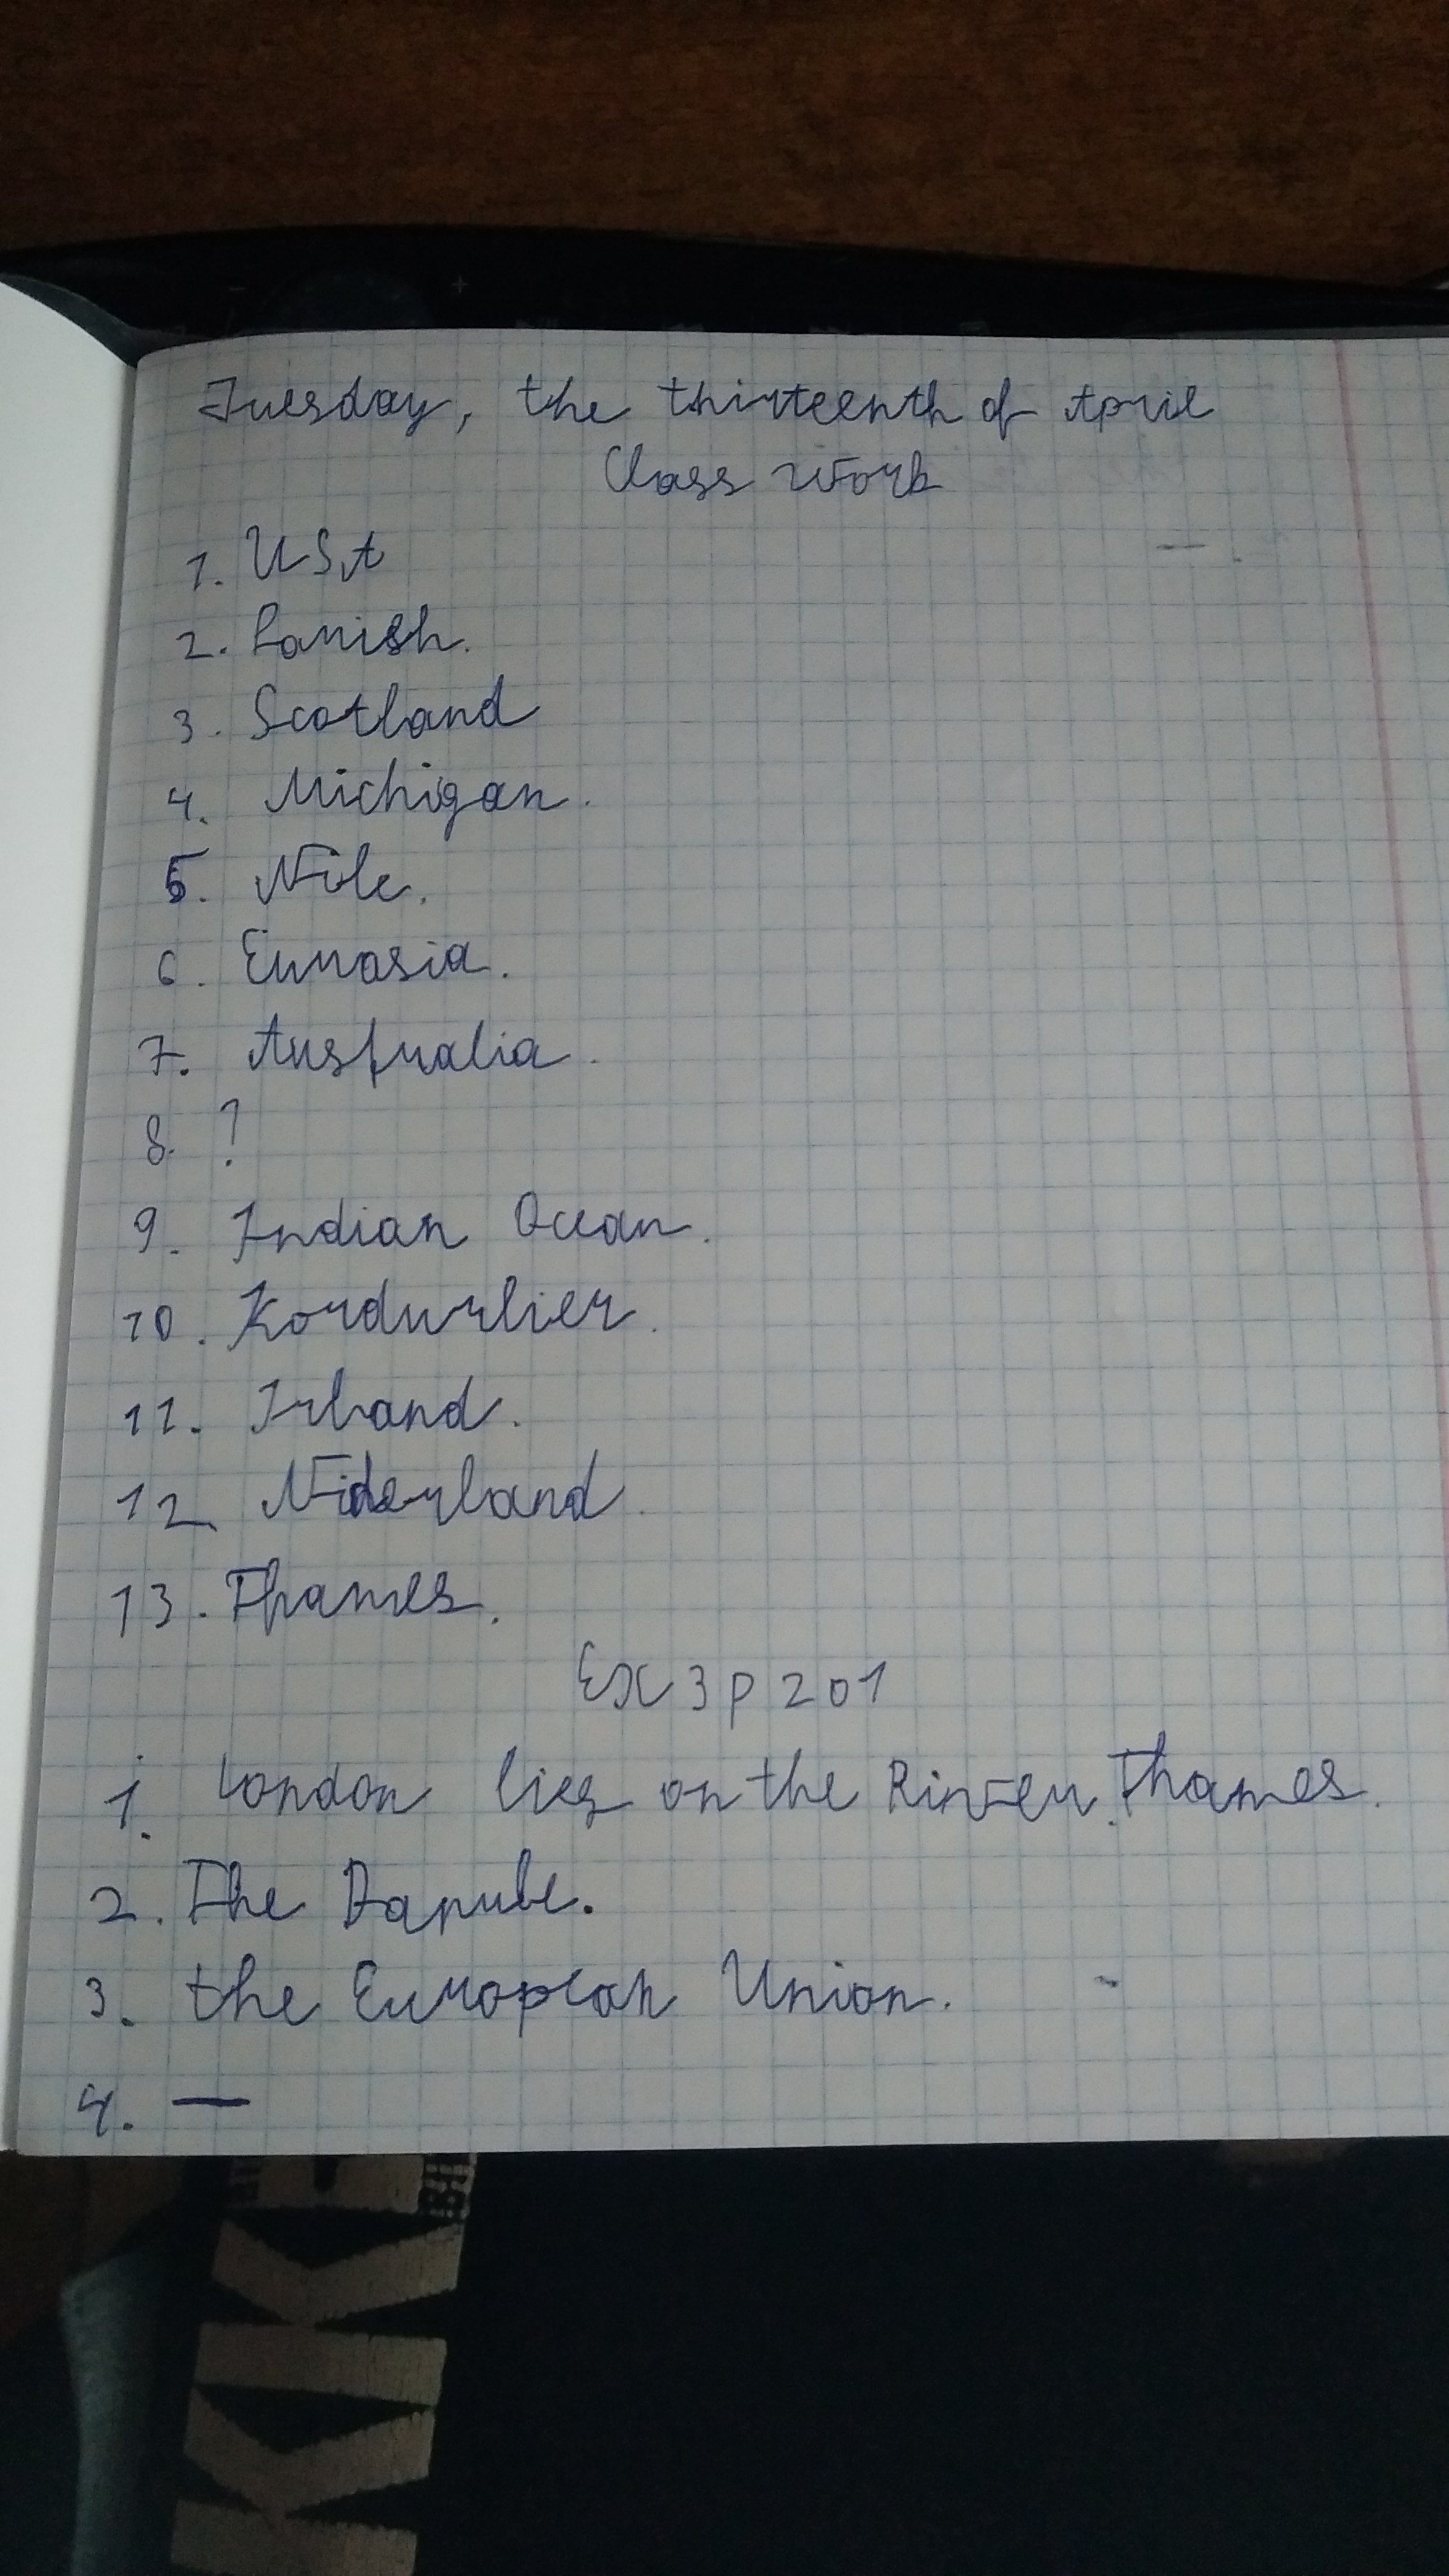 Tuesday, the thirteenth of April
Class Work
1. USA
2. Panish.
3. Scotland
4. Michigan.
5. Nile.
6. Eurasia.
7. Australia.
8. ?
9. Indian Ocean.
10. Kordurlier.
11. Irland.
12. Niderland.
13. Thames.
Ex 3 p 201
1. London lies on the River Thames.
2. The Danube.
3. the European Union.
4. —